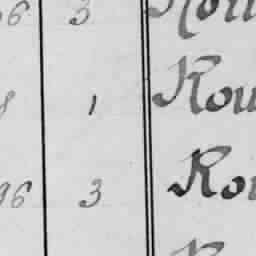 96 3 Rou
8 1 Rou
96 3 Rou